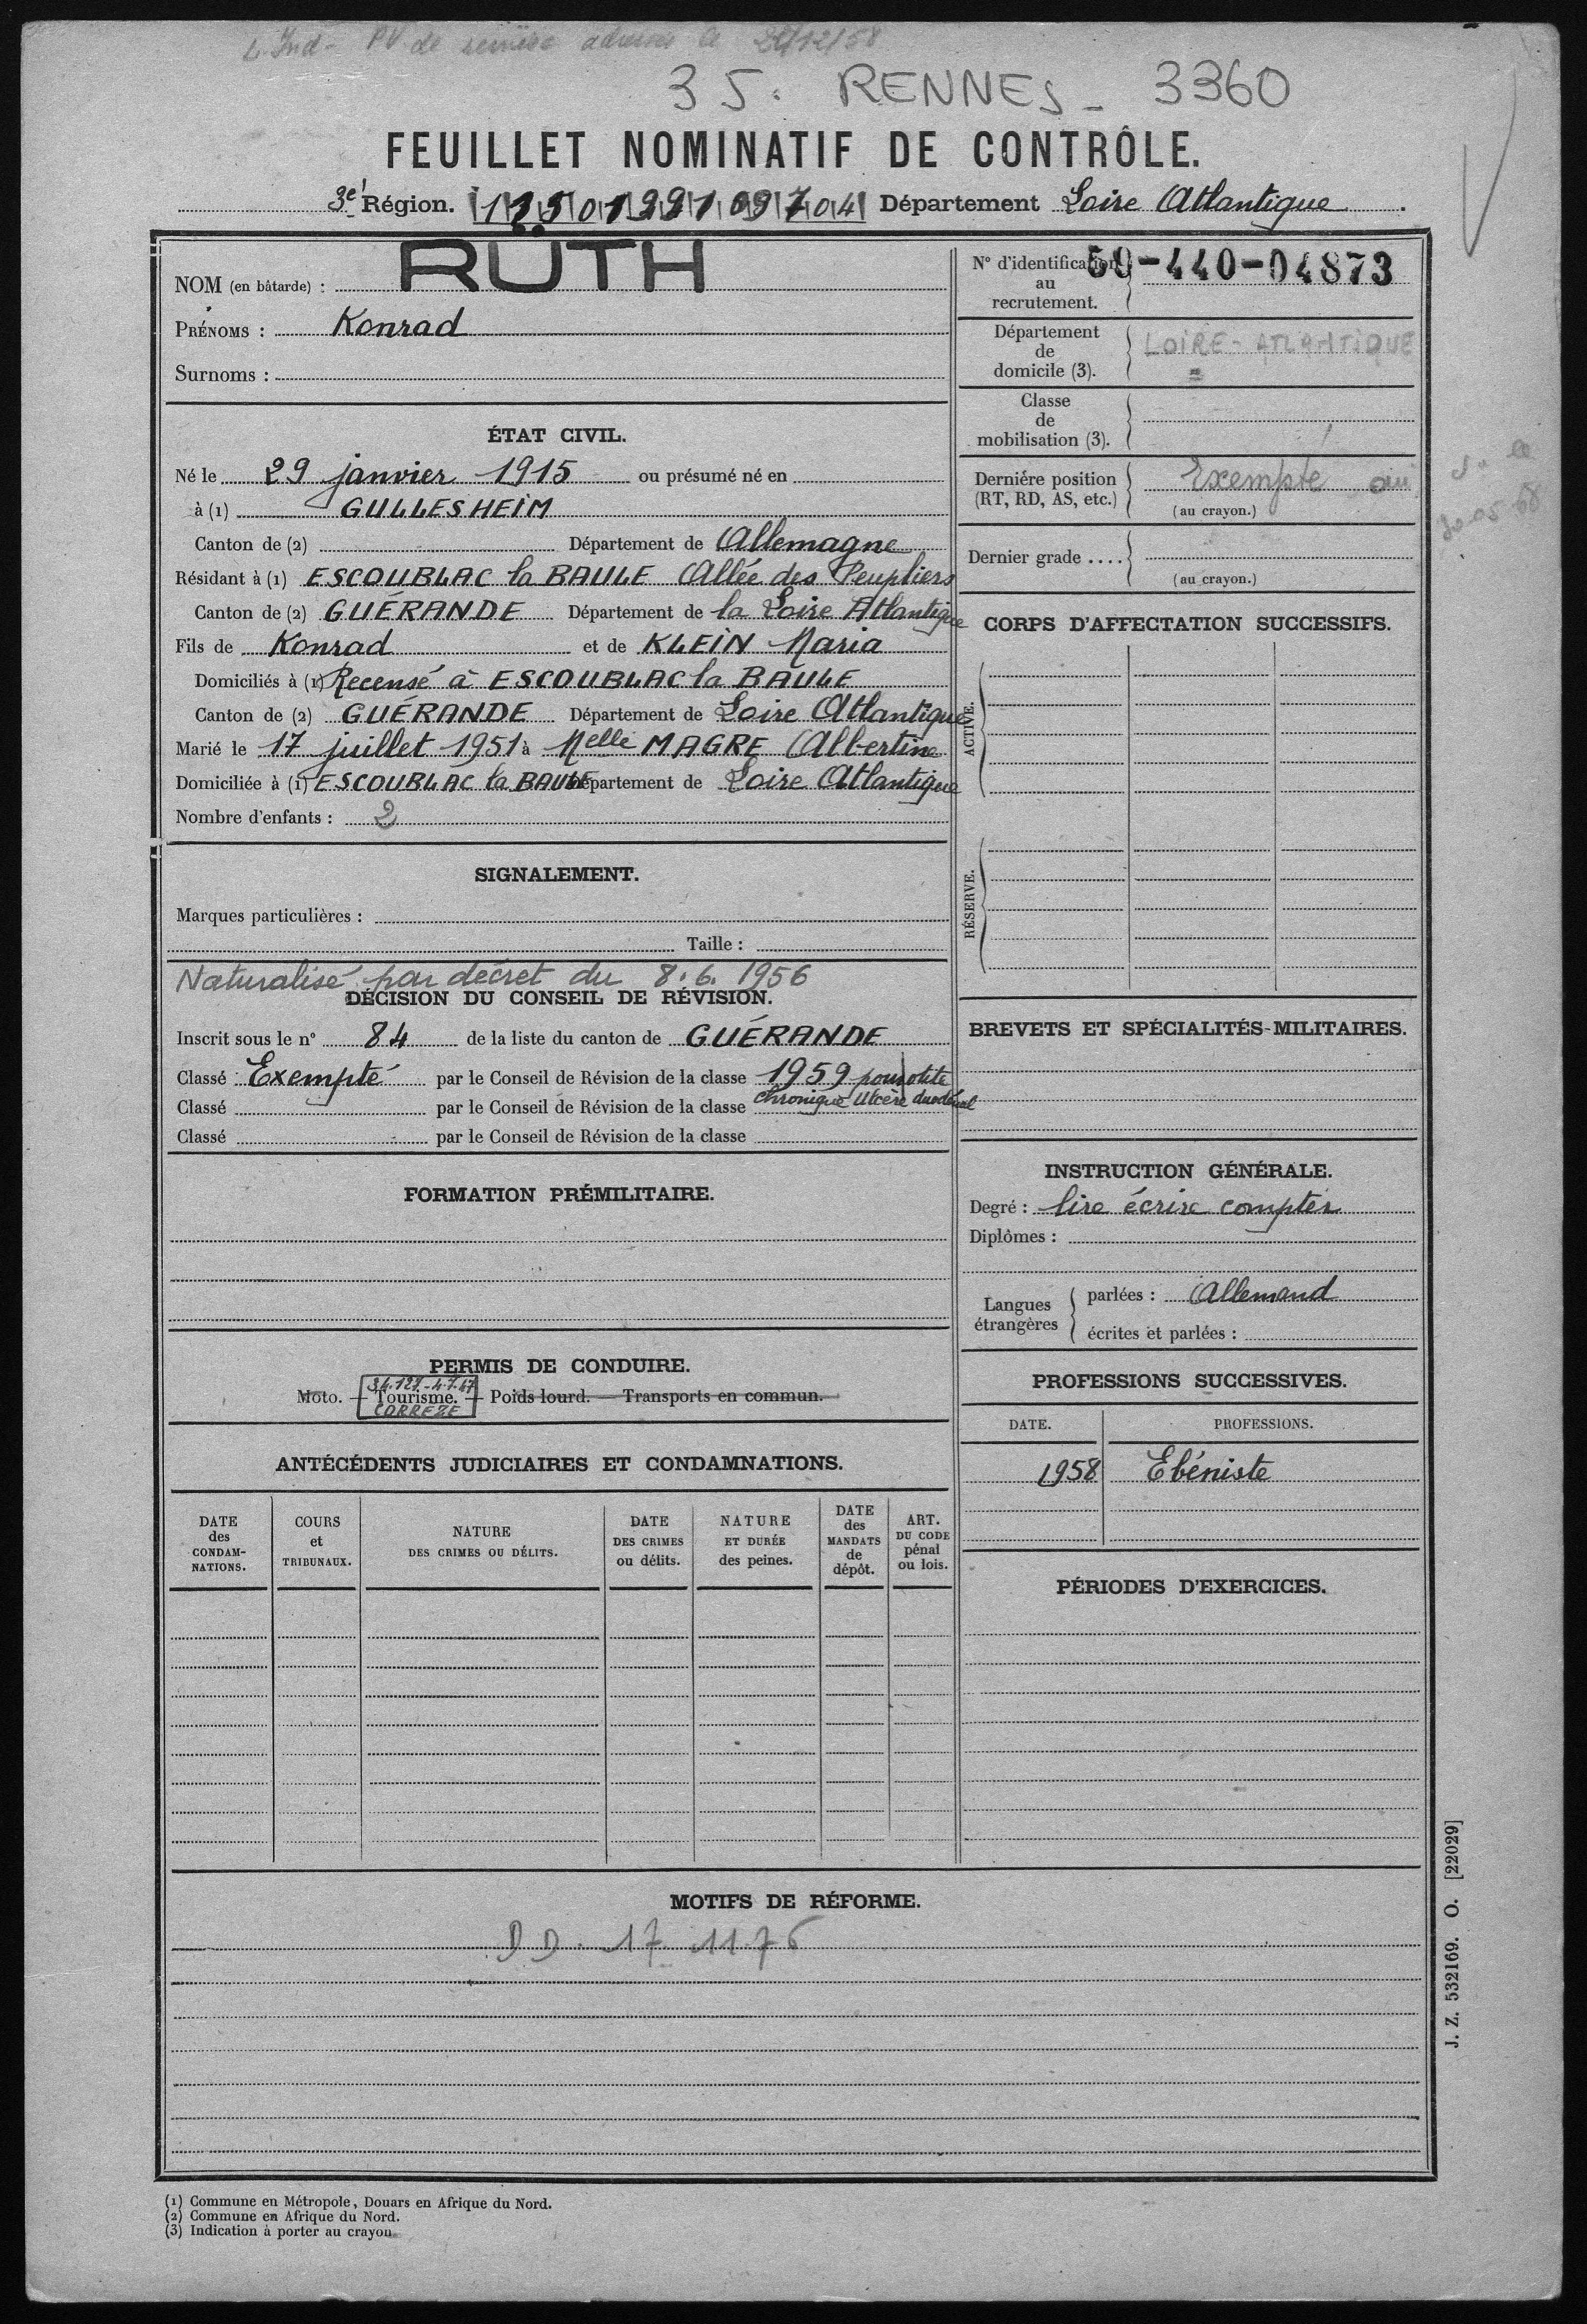 PV de 12/58
35. RENNES - 3360
FEUILLET NOMINATIF DE CONTRÔLE.
3e Région. Département Loire Atlantique.
NOM (en bâtarde) : RÜTH
PRÉNOMS : Konrad
Surnoms :
ÉTAT CIVIL.
Né le 29 janvier 1915 ou présumé né en
à (1) GULLESHEIM
Canton de (2) Département de Allemagne
Résidant à (1) ESCOUBLAC la BAULE Allée des Peupliers
Canton de (2) GUÉRANDE Département de la Loire Atlantique
Fils de Konrad et de KLEIN Maria
Domiciliés à (1) Recensé à ESCOUBLAC la BAULE
Canton de (2) GUÉRANDE Département de Loire Atlantique
Marié le 17 juillet 1951 à Melle MAGRE Albertine
Domiciliée à (1) ESCOUBLAC la BAULE Département de Loire Atlantique
Nombre d'enfants : 2
SIGNALEMENT.
Marques particulières :
Taille :
Naturalisé par décret du 8.6.1956
DÉCISION DU CONSEIL DE RÉVISION.
Inscrit sous le n° 84 de la liste du canton de GUÉRANDE
Classé Exempté par le Conseil de Révision de la classe 1959 pour otite
Classé par le Conseil de Révision de la classe chronique Ulcère duodénal
Classé par le Conseil de Révision de la classe
FORMATION PRÉMILITAIRE.
PERMIS DE CONDUIRE.
34.127.-4.7.47
Moto. — Tourisme. — Poids lourd. — Transports en commun.
CORREZE
ANTÉCÉDENTS JUDICIAIRES ET CONDAMNATIONS.
DATE des CONDAMNATIONS.
COURS et TRIBUNAUX.
NATURE DES CRIMES OU DÉLITS.
DATE DES CRIMES ou délits.
NATURE ET DURÉE des peines.
DATE des MANDATS de dépôt.
ART. DU CODE pénal ou lois.
N° d'identification au recrutement. 59-440-04873
Département de domicile (3). LOIRE-ATLANTIQUE
Classe de mobilisation (3).
Dernière position (RT, RD, AS, etc.) Exempté
(au crayon.)
Dernier grade ....
(au crayon.)
CORPS D'AFFECTATION SUCCESSIFS.
ACTIVE.
RÉSERVE.
BREVETS ET SPÉCIALITÉS MILITAIRES.
INSTRUCTION GÉNÉRALE.
Degré : lire écrire compter
Diplômes :
Langues étrangères
parlées : Allemand
écrites et parlées :
PROFESSIONS SUCCESSIVES.
DATE. PROFESSIONS.
1958 Ebéniste
PÉRIODES D'EXERCICES.
MOTIFS DE RÉFORME.
DD. 17.11.76
J. Z. 532169. O. [22029]
(1) Commune en Métropole, Douars en Afrique du Nord.
(2) Commune en Afrique du Nord.
(3) Indication à porter au crayon